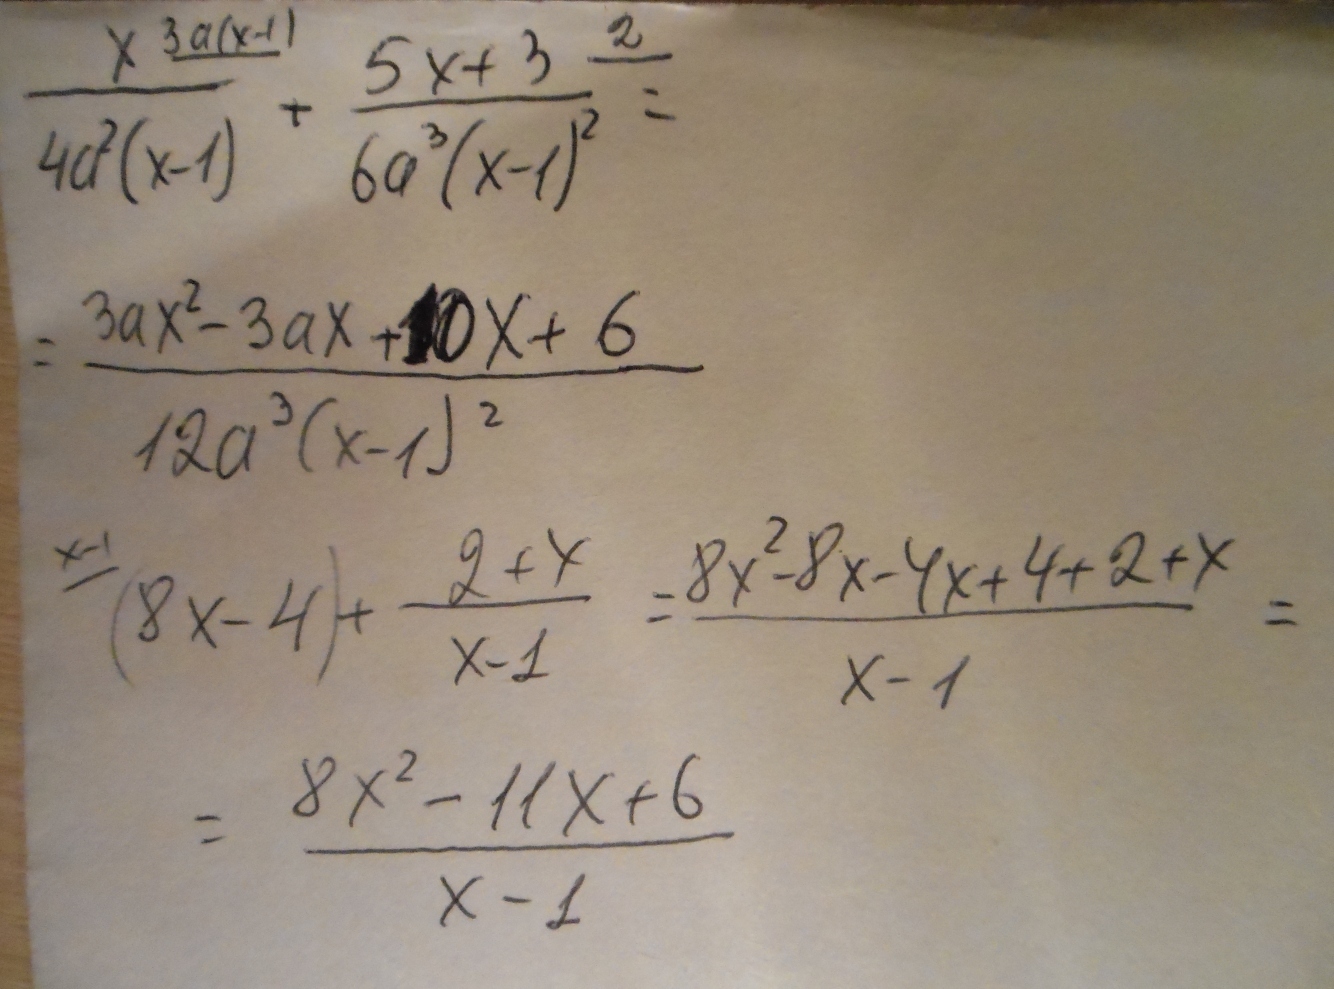 x 3a(x-1) / 4a²(x-1) + 5x+3 2 / 6a³(x-1)² =
= 3ax²-3ax+10x+6 / 12a³(x-1)²
x-1 (8x-4)+ 2+x / x-1 = 8x²-8x-4x+4+2+x / x-1 =
= 8x²-11x+6 / x-1